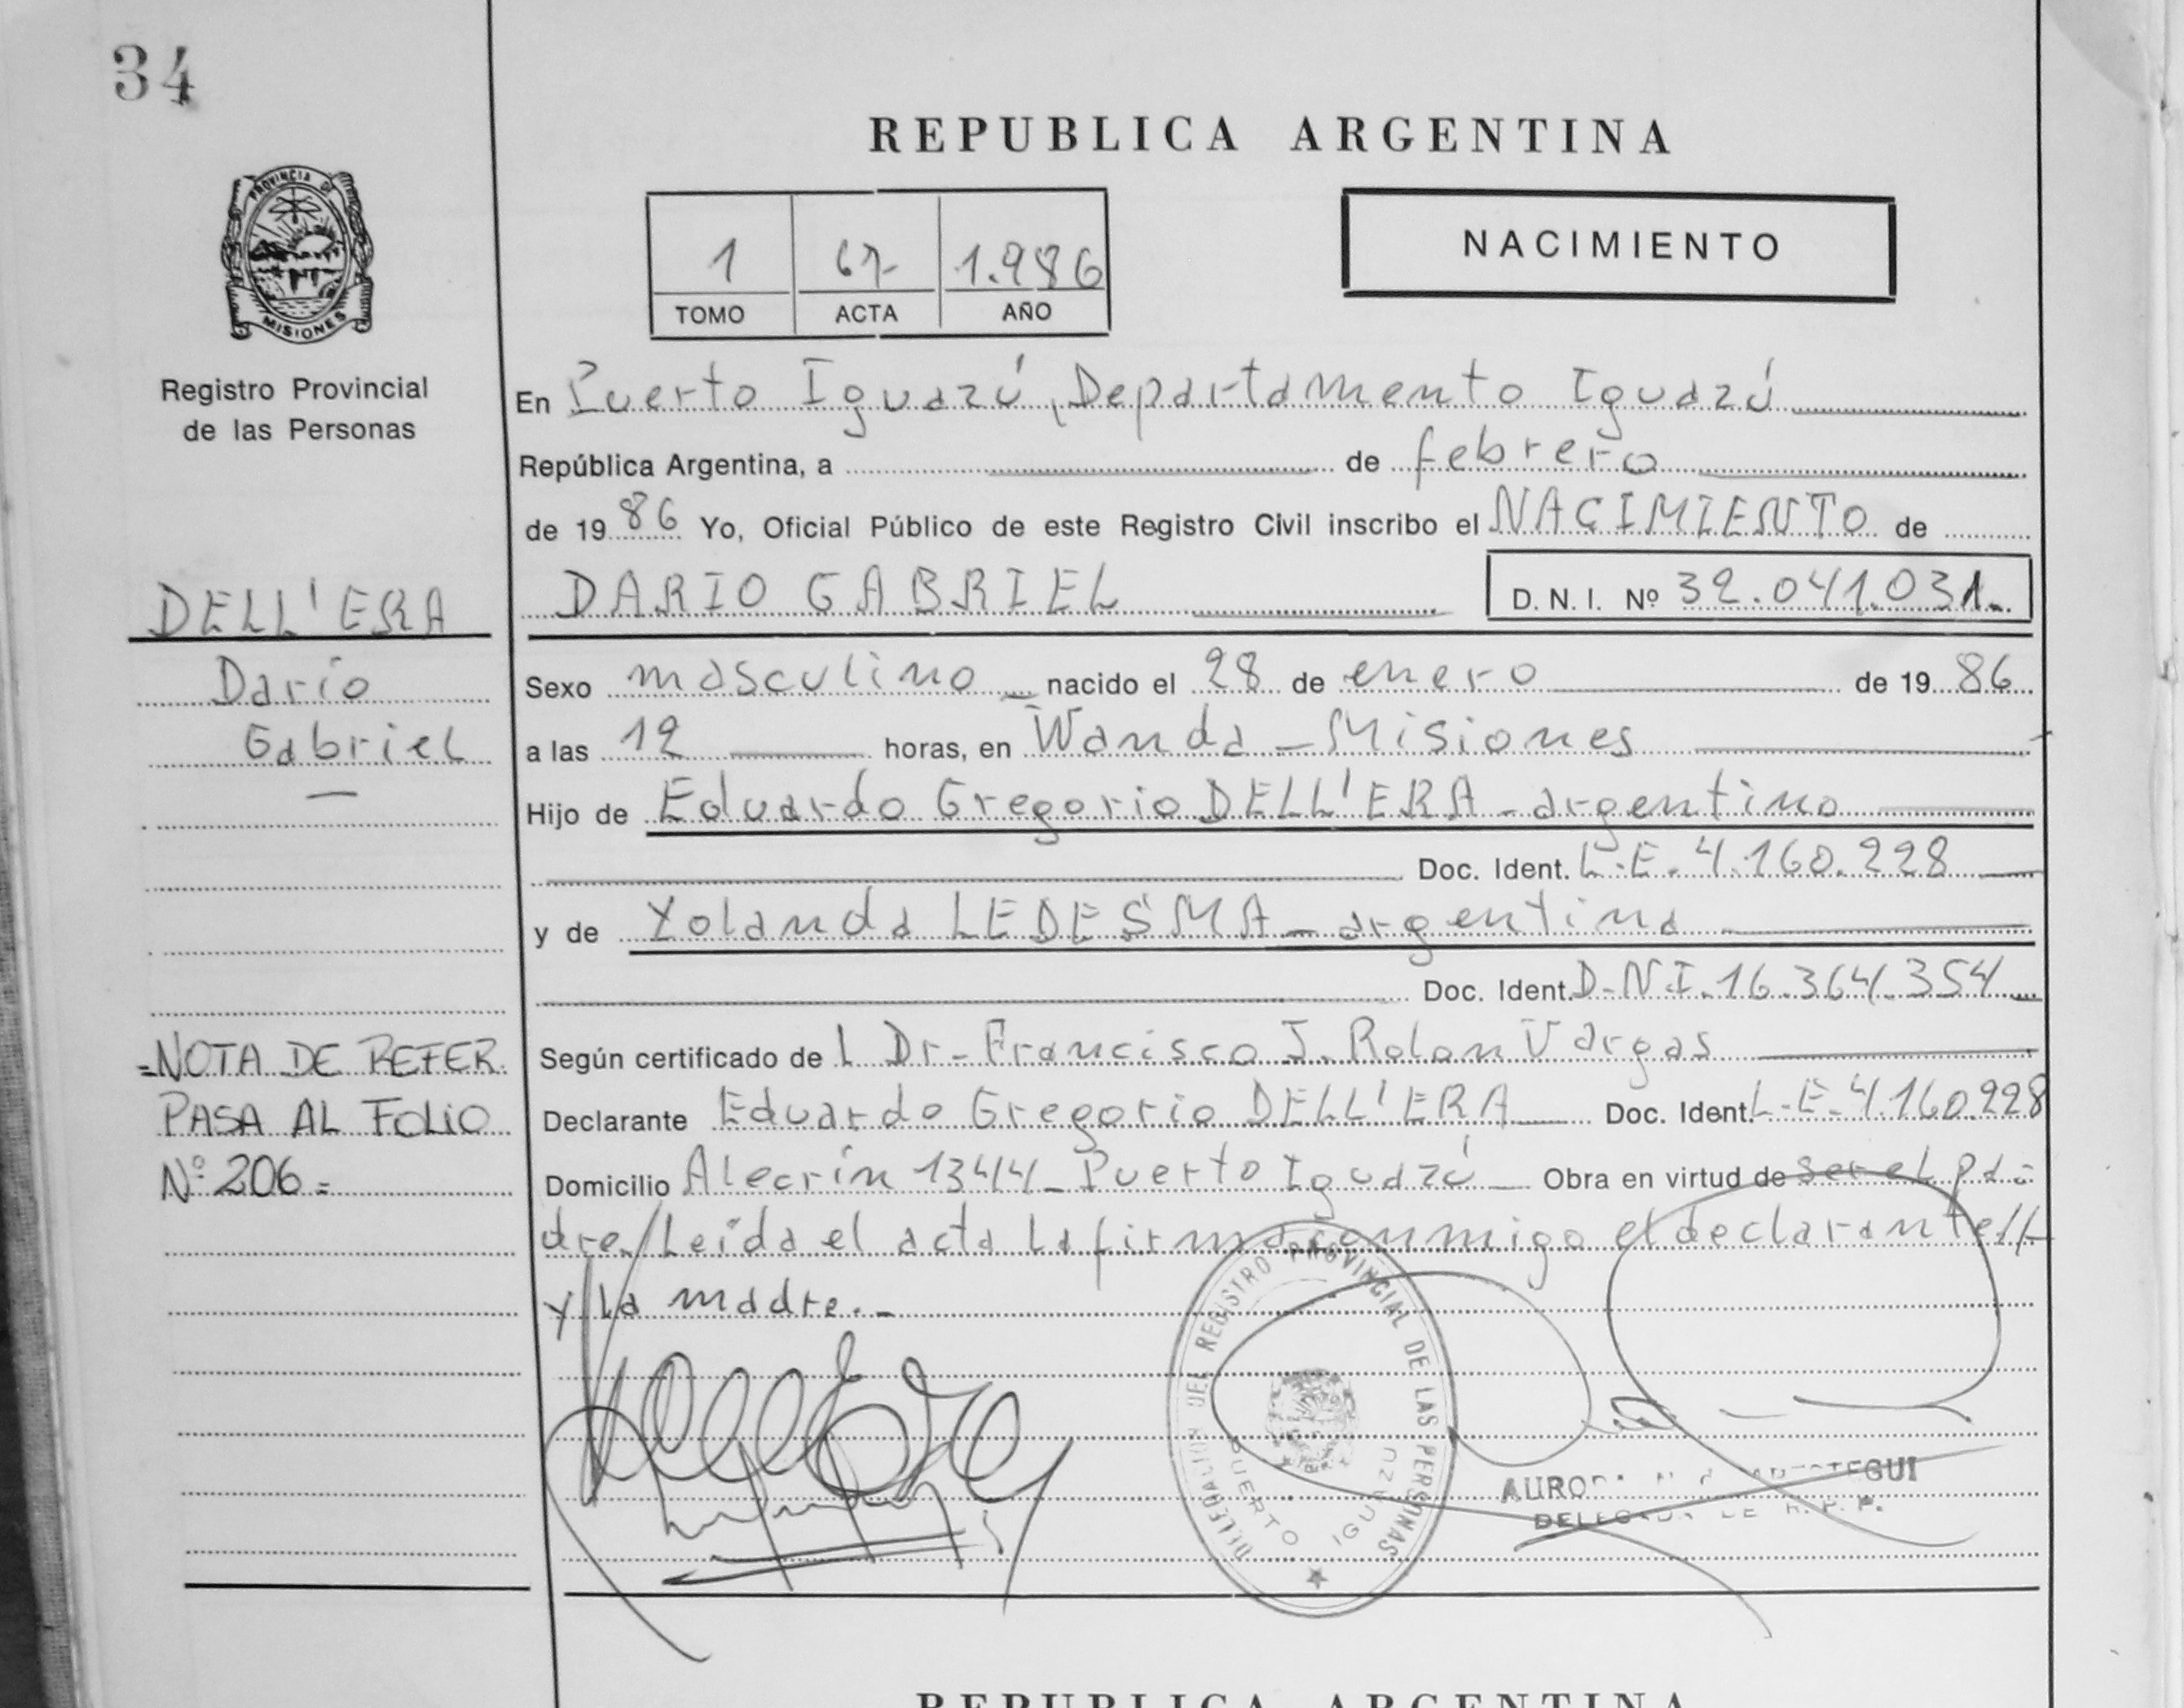 34
REPUBLICA ARGENTINA
PROVINCIA DE
MISIONES
Registro Provincial
de las Personas
1 67- 1.986
TOMO ACTA AÑO
NACIMIENTO
En Puerto Iguazú, Departamento Iguazú
República Argentina, a de febrero
de 1986 Yo, Oficial Público de este Registro Civil inscribo el NACIMIENTO de
DARIO GABRIEL
D. N. I. Nº 32.041.031.
DELL'ERA
Darío
Gabriel
Sexo masculino nacido el 28 de enero de 1986
a las 12 horas, en Wanda - Misiones
Hijo de Eduardo Gregorio DELL'ERA - argentino
Doc. Ident. L.E. 4.160.228
y de Yolanda LEDESMA - argentina
Doc. Ident. D.N.I. 16.364.354
=NOTA DE REFER.
PASA AL FOLIO
Nº 206=
Según certificado del Dr. Francisco J. Rolon Vargas
Declarante Eduardo Gregorio DELL'ERA Doc. Ident. L.E. 4.160.228
Domicilio Alecrín 1344 - Puerto Iguazú Obra en virtud de ser el pa-
dre/Leída el acta la firma conmigo el declarante//
y la madre.-
DELEGACION DEL REGISTRO PROVINCIAL DE LAS PERSONAS
PUERTO IGUAZU
REPUBLICA ARGENTINA